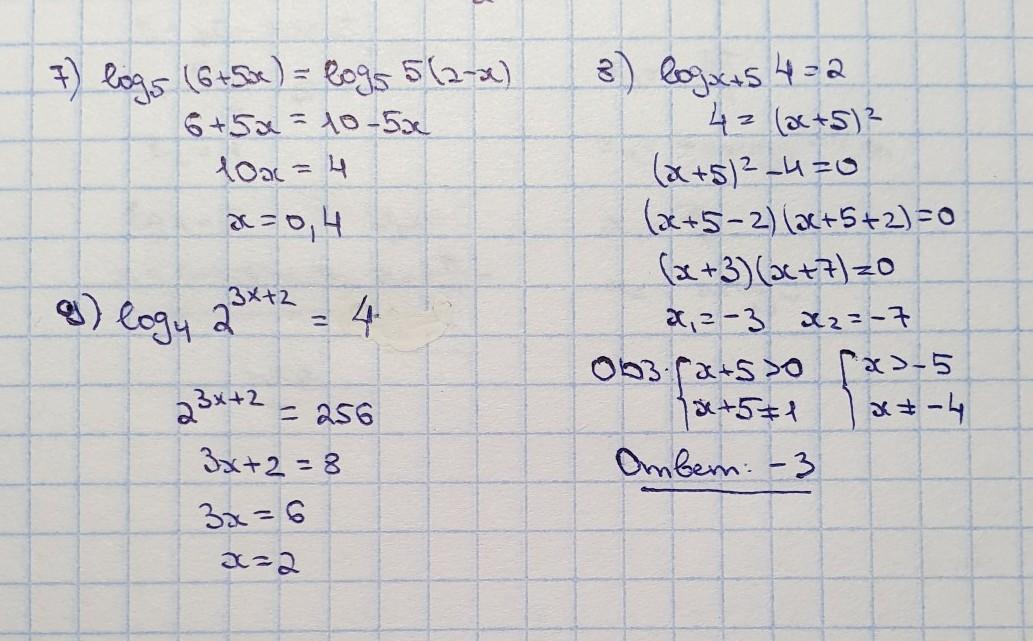 7) log₅ (6+5x) = log₅ 5(2-x)
6+5x = 10-5x
10x = 4
x = 0,4
9) log₄ 2^(3x+2) = 4
2^(3x+2) = 256
3x+2 = 8
3x = 6
x = 2
8) logₓ₊₅ 4 = 2
4 = (x+5)²
(x+5)² - 4 = 0
(x+5-2)(x+5+2) = 0
(x+3)(x+7) = 0
x₁ = -3 x₂ = -7
ОДЗ: { x+5 > 0 { x > -5
x+5 ≠ 1 x ≠ -4
Ответ: -3